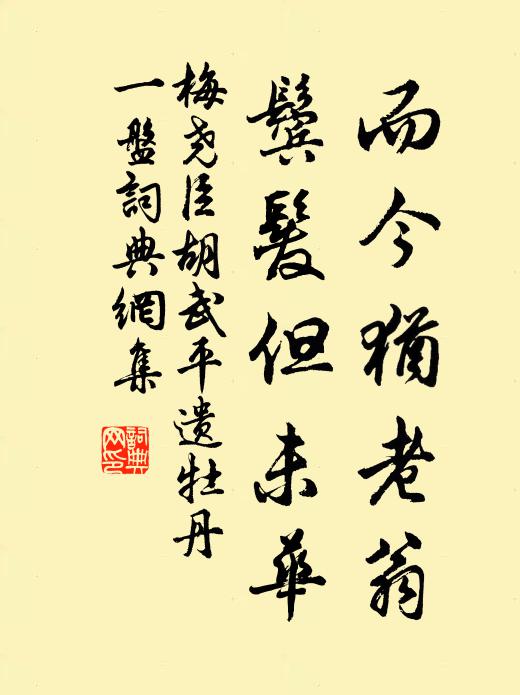 而今猶老翁
鬓髮但未華
梅尧臣胡武平遗牡丹
一盤詞典網集
詞典
网印